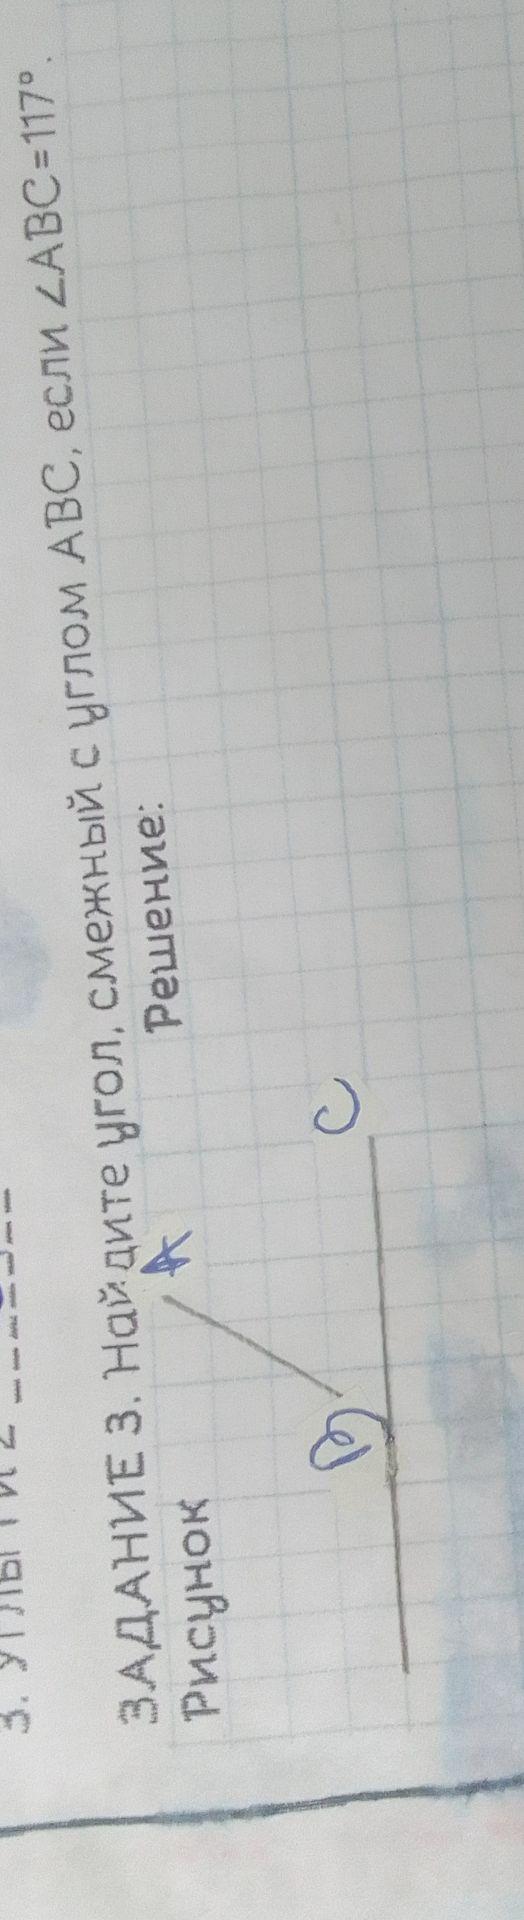 3. УГЛЫ 1 И 2
ЗАДАНИЕ 3. Найдите угол, смежный с углом АВС, если ∠АВС=117°.
Рисунок Решение:
А
В
С